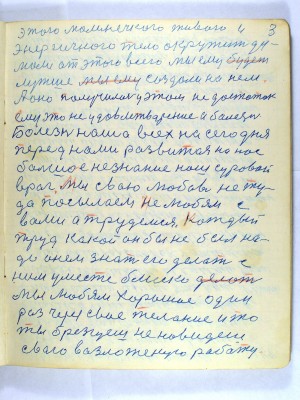 3
этого маленького живого и
энергичного тело окружит ду-
мали от этого всего мы ему будет
лучше мы ему создали на нем.
А оно получилось у этом не достаток
ему это не удовлетварение и балезн
Болезн наша всех на сегодня
перед нами развитая на нас
большое незнание наш суровой
враг, мы сваю любовь не ту-
да посылаем не любям с
вами а трудемся, Каждый
труд какой он бы не был на-
до о нем знат его делат с
ним уместе близко делат
мы любям хорошое один
раз через свое желание и то
ты брезуеш не новидеш
свого вазложеную работу.